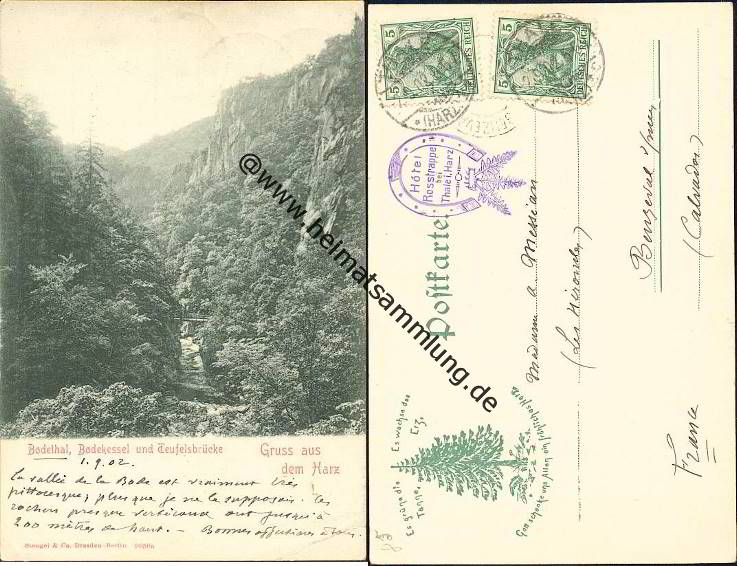 Bodethal, Bodekessel und Teufelsbrücke
Gruss aus
dem Harz
1.9.02.
La vallée de la Bode est vraiment très
pittoresque, plus que je ne le supposais. Les
rochers presque verticaux ont jusqu'à
200 mètres de haut. – Bonnes affections à tous.
Stengel & Co., Dresden-Berlin
@www.heimatsammlung.de
5 5
DEUTSCHES REICH
5 5
DEUTSCHES REICH
(HARZ)
Hôtel
Rosstrappe
bei
Thale i. Harz
Postkarte
Madame A. Messian
(Les
(Calvados)
France
Es grüne die
Tanne,
Es wachse das
Erz,
Gott schenke uns Allen ein fröhliches Herz.